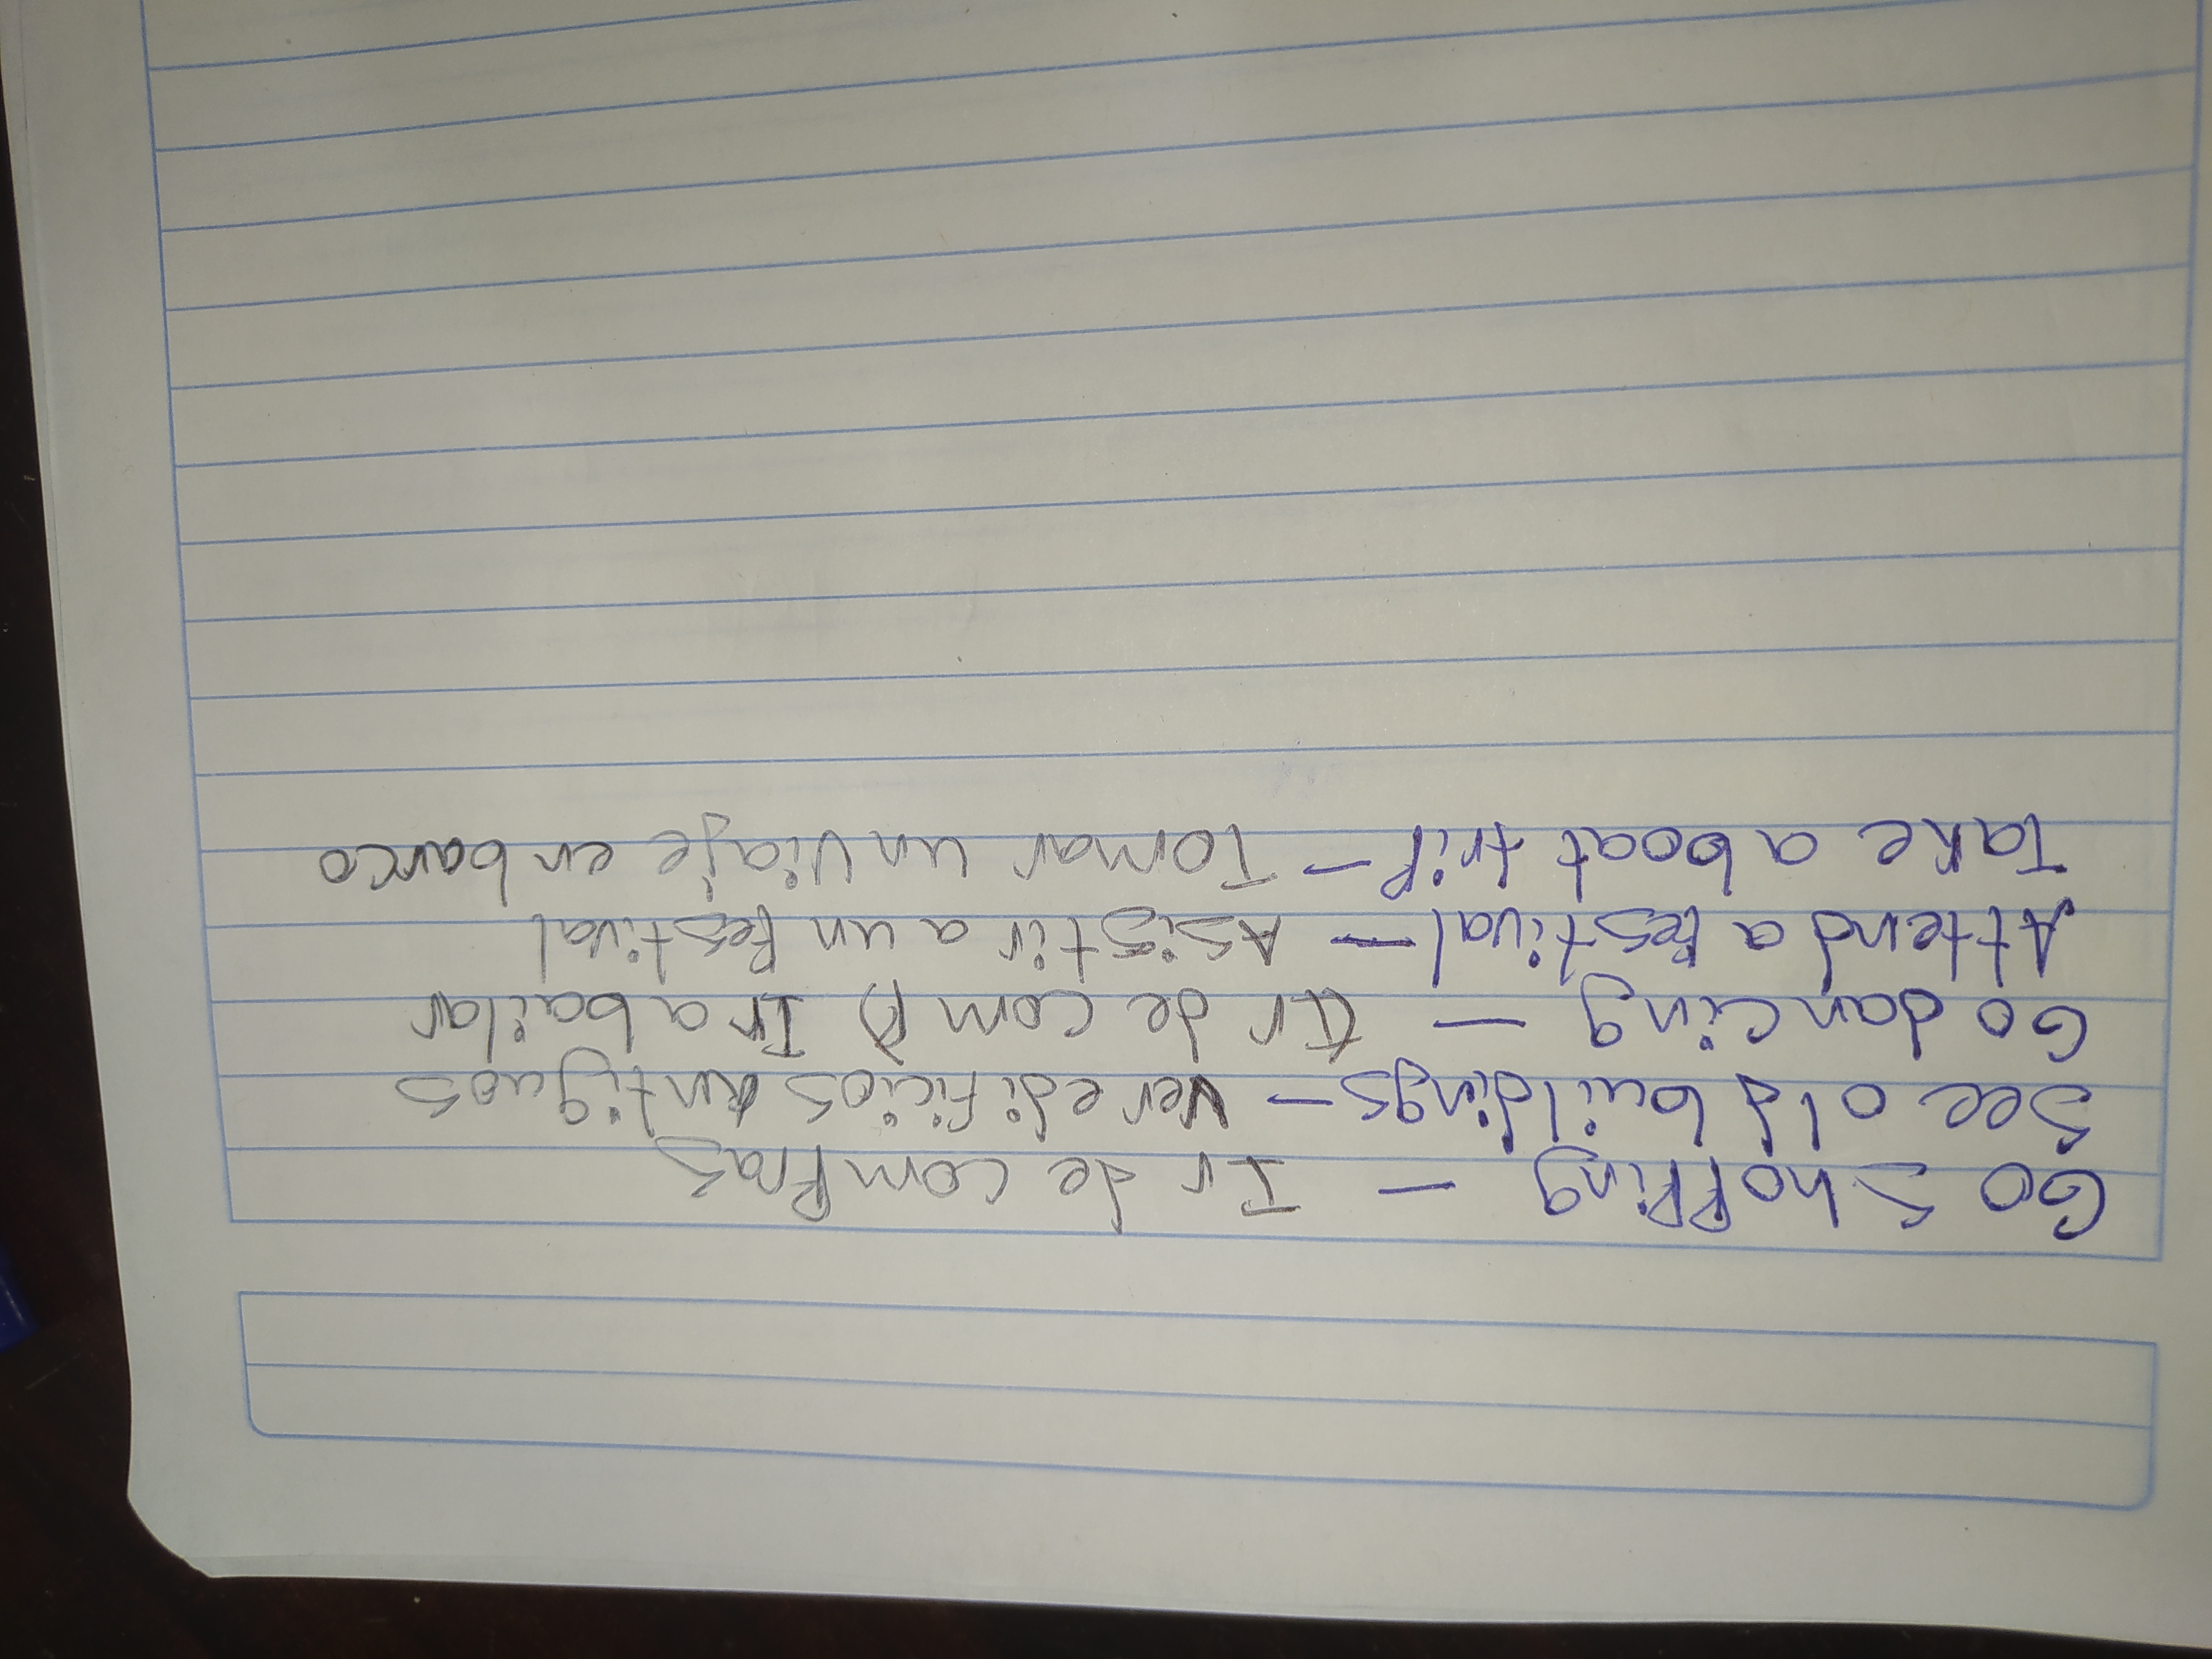 Go shopping — Ir de compras
See old buildings — Ver edificios antiguos
Go dancing — (Ir de comp) Ir a bailar
Attend a festival — Asistir a un festival
Take a boat trip — Tomar un viaje en barco